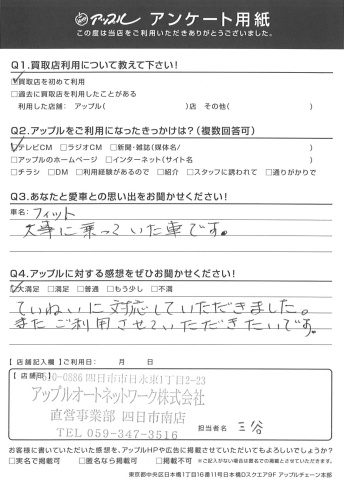 アップル アンケート用紙
この度は当店をご利用いただきありがとうございました。
Q1.買取店利用について教えて下さい!
☑買取店を初めて利用
□過去に買取店を利用したことがある
利用した店舗: アップル( )店 その他( )
Q2.アップルをご利用になったきっかけは?(複数回答可)
☑テレビCM □ラジオCM □新聞・雑誌(媒体名/ )
□アップルのホームページ □インターネット(サイト名 )
□チラシ □DM □利用経験があるので □紹介 □スタッフに誘われて □通りがかりで
Q3.あなたと愛車との思い出をお聞かせください!
車名: フィット
大事に乗っていた車です。
Q4.アップルに対する感想をぜひお聞かせください!
☑大満足 □満足 □普通 □もう少し □不満
ていねいに対応していただきました。
またご利用させていただきたいです。
【店舗記入欄】ご利用日: 月 日
【店舗印】
510-0886 四日市市日永東1丁目2-23
アップルオートネットワーク株式会社
直営事業部 四日市南店
TEL 059-347-3516
担当者名 三谷
お客様に書いていただいた感想を、アップルHPや広告に掲載させていただいてもよろしいでしょうか?
□実名で掲載可 □匿名なら掲載可 □掲載不可 ※ご記入がない場合は匿名での掲載とさせていただきます。
東京都中央区日本橋1丁目16番11号日本橋Dスクエア9F アップルチェーン本部